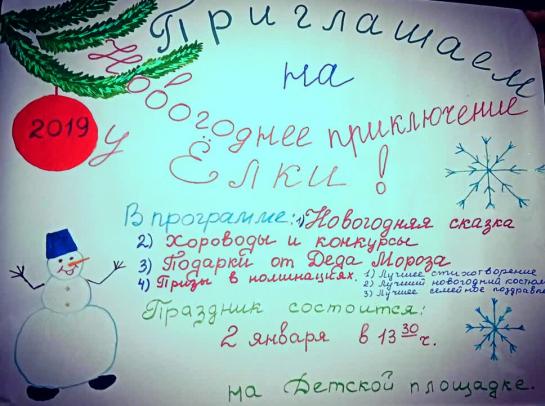 Приглашаем
на
Новогоднее приключение
у
Ёлки!
2019
В программе: 1) Новогодняя сказка
2) Хороводы и конкурсы
3) Подарки от Деда Мороза
4) Призы в номинациях. 1) Лучшее стихотворение
2) Лучший новогодний костюм
3) Лучшее семейное
Праздник состоится:
2 января в 13 30 ч.
на Детской площадке.